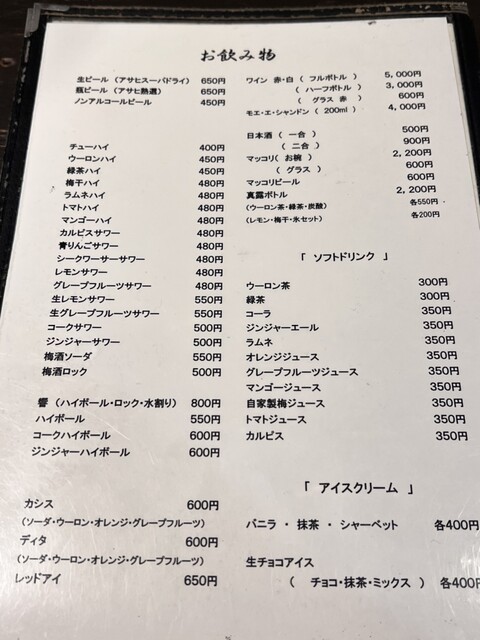 お飲み物
生ビール (アサヒスーパドライ) 650円
瓶ビール (アサヒ熟選) 650円
ノンアルコールビール 450円
チューハイ 400円
ウーロンハイ 450円
緑茶ハイ 450円
梅干ハイ 480円
ラムネハイ 480円
トマトハイ 480円
マンゴーハイ 480円
カルピスサワー 480円
青りんごサワー 480円
シークワーサーサワー 480円
レモンサワー 480円
グレープフルーツサワー 480円
生レモンサワー 550円
生グレープフルーツサワー 550円
コークサワー 500円
ジンジャーサワー 500円
梅酒ソーダ 550円
梅酒ロック 500円
響 (ハイボール・ロック・水割り) 800円
ハイボール 550円
コークハイボール 600円
ジンジャーハイボール 600円
カシス 600円
(ソーダ・ウーロン・オレンジ・グレープフルーツ)
ディタ 600円
(ソーダ・ウーロン・オレンジ・グレープフルーツ)
レッドアイ 650円
ワイン 赤・白 ( フルボトル ) 5,000円
( ハーフボトル ) 3,000円
( グラス 赤 ) 600円
モエ・エ・シャンドン ( 200ml ) 4,000円
日本酒 ( 一合 ) 500円
( 二合 ) 900円
マッコリ( お椀 ) 2,200円
( グラス ) 600円
マッコリビール 600円
真露ボトル 2,200円
(ウーロン茶・緑茶・炭酸) 各550円
(レモン・梅干・氷セット) 各200円
「 ソフトドリンク 」
ウーロン茶 300円
緑茶 300円
コーラ 350円
ジンジャーエール 350円
ラムネ 350円
オレンジジュース 350円
グレープフルーツジュース 350円
マンゴージュース 350円
自家製梅ジュース 350円
トマトジュース 350円
カルピス 350円
「 アイスクリーム 」
バニラ ・ 抹茶 ・ シャーベット 各400円
生チョコアイス
( チョコ・抹茶・ミックス ) 各400円